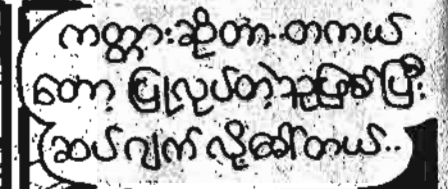 ကတ္တားဆိုတာ တကယ်
တော့ ပြုလုပ်တဲ့သူဖြစ်ပြီး
ဆပ်ဂျက် လို့ခေါ်တယ်..